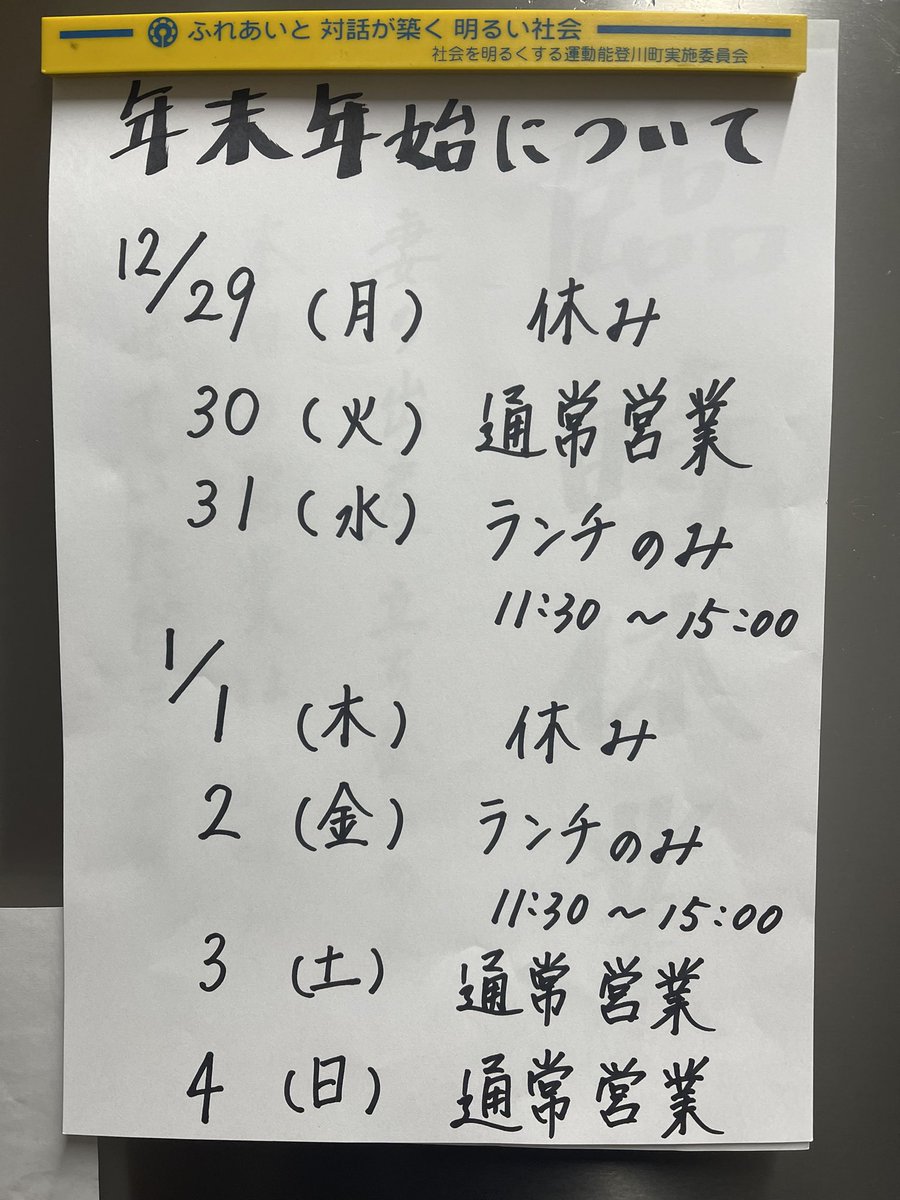 ふれあいと 対話が築く 明るい社会
社会を明るくする運動能登川町実施委員会
年末年始について
12/29 (月) 休み
30 (火) 通常営業
31 (水) ランチのみ
11:30 ~ 15:00
1/1 (木) 休み
2 (金) ランチのみ
11:30 ~ 15:00
3 (土) 通常営業
4 (日) 通常営業